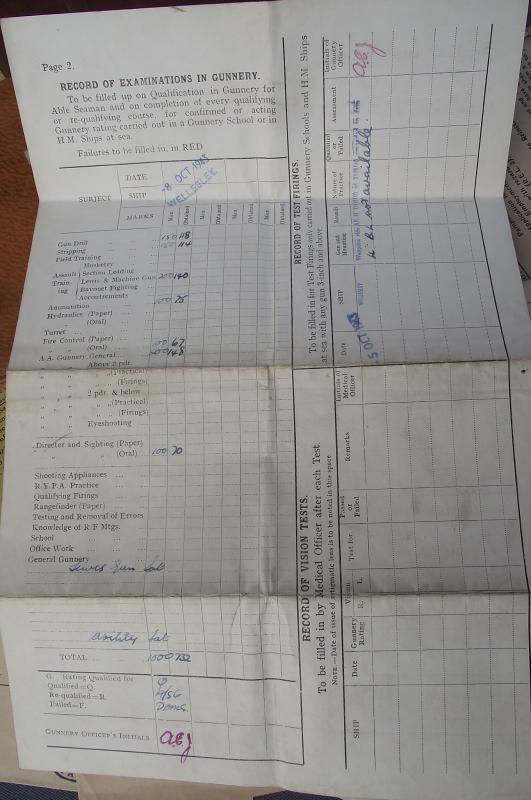 Page 2.
RECORD OF EXAMINATIONS IN GUNNERY.
To be filled up on Qualification in Gunnery for
Able Seaman and on completion of every qualifying
or re-qualifying course, for confirmed or acting
Gunnery rating carried out in a Gunnery School or in
H.M. Ships at sea.
Failures to be filled in, in RED
SUBJECT
DATE
-8 OCT 1943
SHIP
WELLESLEY
MARKS Max Obtained Max Obtained Max Obtained Max Obtained
Gun Drill 150 118
Stripping 150 114
Field Training
Musketry
Assault Training
Section Leading
Lewis & Machine Gun 200 140
Bayonet Fighting
Accoutrements
Ammunition 100 75
Hydraulics (Paper)
(Oral)
Turret
Fire Control (Paper) 100 67
" (Oral) 200 148
A.A. Gunnery, General
" " Above 2 pdr.
" " " (Practical)
" " " (Firings)
" " 2 pdr. & below
" " " (Practical)
" " " (Firings)
" " Eyeshooting
Director and Sighting (Paper)
" " (Oral) 100 70
Shooting Appliances
R.Y.P.A. Practice
Qualifying Firings
Rangefinder (Paper)
Testing and Removal of Errors
Knowledge of R/F Mtgs.
School
Office Work
General Gunnery
Lewis Gun Sat
Ability Sat
TOTAL 1000 732
G. Rating Qualified for
Qualified=Q. Q
Re-qualified=R.
Failed=F.
GUNNERY OFFICER'S INITIALS
RECORD OF TEST FIRINGS.
To be filled in for Test Firings only carried out in Gunnery Schools and H.M. Ships
at sea with any gun 3-inch and above.
Date
SHIP
Gun and Mounting
Rounds
Nature of Practice
Qualified or Failed
Assessment
Initials of Gunnery Officer
-5 OCT 1943
WELLESLEY
not available.
RECORD OF VISION TESTS.
To be filled in by Medical Officer after each Test.
NOTE.—Date of issue of astigmatic lens is to be noted in this space.
SHIP
Date
Gunnery Rating
Vision
R.
L.
Test for
Passed or Failed
Remarks
Initials of Medical Officer